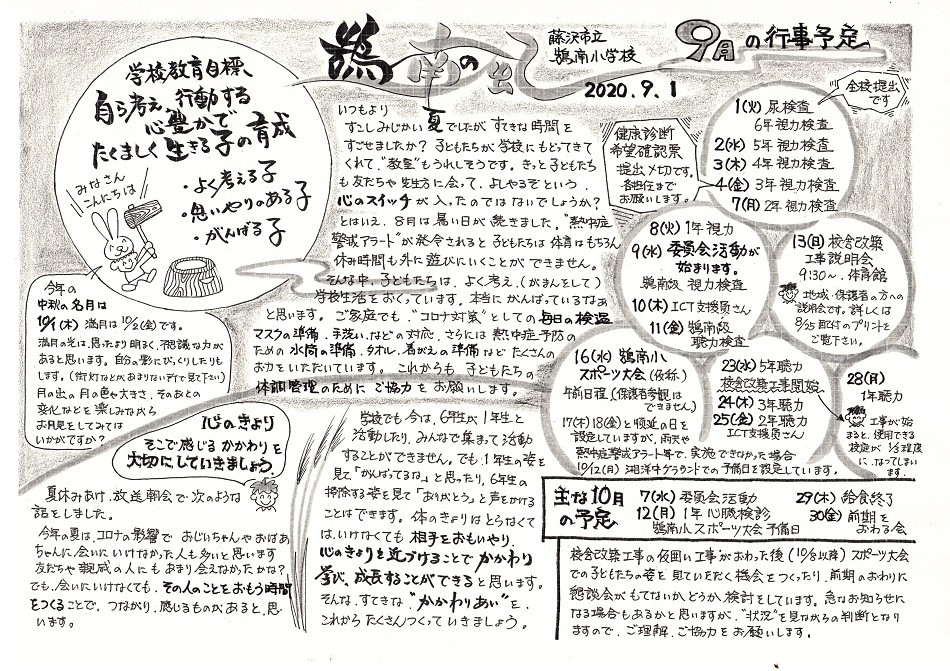 鵠南の風
藤沢市立
鵠南小学校
2020.9.1
学校教育目標、
自ら考え、行動する
心豊かで
たくましく生きる子の育成
・よく考える子
・思いやりのある子
・がんばる子
みなさん
こんにちは
今年の
中秋の名月は
10/1(木) 満月は10/2(金)です。
満月の光は、思ったより明るく、不思議な力が
あると思います。自分の影にびっくりしたりも
します。(街灯などがあまりない所で見て下さい)
月の出の月の色や大きさ、そのあとの
変化などを楽しみながら
お月見をしてみては
いかがですか?
いつもより
すこしみじかい夏でしたが すてきな時間を
すごせましたか? 子どもたちが学校にもどってきて
くれて、"教室"もうれしそうです。きっと子どもたち
も友だちや先生方に会って、よしやるぞという、
心のスイッチが入ったのではないでしょうか?
とはいえ、8月は暑い日が続きました。"熱中症
警戒アラート"が発令されると子どもたちは体育はもちろん
休み時間も外に遊びにいくことができません。
そんな中、子どもたちは、よく考え、(がまんをして)
学校生活をおくっています。本当にがんばっているなあ
と思います。ご家庭でも、"コロナ対策"としての毎日の検温
マスクの準備、手洗いなどの対応、さらには熱中症予防の
ための水筒の準備、タオル、着がえの準備など たくさんの
お力をいただいています。これからも子どもたちの
体調管理のために ご協力をお願いします。
心のきょり
そこで感じるかかわりを
大切にしていきましょう。
夏休みあけ、放送朝会で次のような
話をしました。
今年の夏は、コロナの影響で おじいちゃんやおばあ
ちゃんに会いにいけなかった人も多いと思います
友だちや親戚の人にもあまり会えなかったかな?
でも、会いにいけなくても、その人のことをおもう時間
をつくることで、つながり、感じるものがあると、思
います。
学校でも今は、6年生が1年生と
活動したり、みんなで集まって活動
することができません。でも、1年生の姿を
見て「がんばってるな」と思ったり、6年生の
掃除する姿を見て「ありがとう」と声をかける
ことはできます。体のきょりはとらなくて
は、いけなくても 相手をおもいやり、
心のきょりを近づけることで かかわり
学び、成長することができると思います。
そんな、すてきな"かかわりあい"を、
これからたくさんつくっていきましょう。
9月の行事予定
全校提出
です
健康診断
希望確認票
提出〆切です。
各担任まで
お願いします。
1(火) 尿検査
6年視力検査
2(水) 5年視力検査
3(木) 4年視力検査
4(金) 3年視力検査
7(月) 2年視力検査
8(火) 1年視力
9(水) 委員会活動が
始まります。
鵠南級 視力検査
10(木) ICT支援員さん
11(金) 鵠南級
聴力検査
13(日) 校舎改築
工事説明会
9:30~. 体育館
地域・保護者の方への
説明会です。詳しくは
8/25配付のプリントを
ご覧下さい。
16(水) 鵠南小
スポーツ大会 (仮称)
午前日程 (保護者参観は
できません)
17(木)18(金)と順延の日を
設定していますが、雨天や
熱中症警戒アラート等で、実施できなかった場合
10/12(月) 湘洋中グラウンドでの予備日を設定しています。
23(水) 5年聴力
校舎改築工事開始
24(木) 3年聴力
25(金) 2年聴力
ICT支援員さん
28(月)
1年聴力
工事が始
まると、使用できる
校庭が 1/3程度
に、なってしまい
ます。
主な10月
の予定
7(水) 委員会活動
12(月) 1年心臓検診
鵠南小スポーツ大会予備日
29(木) 給食終了
30(金) 前期を
おわる会
校舎改築工事の仮囲い工事がおわった後(10/8以降) スポーツ大会
での子どもたちの姿を見ていただく機会をつくったり、前期のおわりに
懇談会がもてないか、どうか、検討をしています。急なお知らせに
なる場合もあるかと思いますが、"状況"を見ながらの判断となり
ますので、ご理解、ご協力をお願いします。